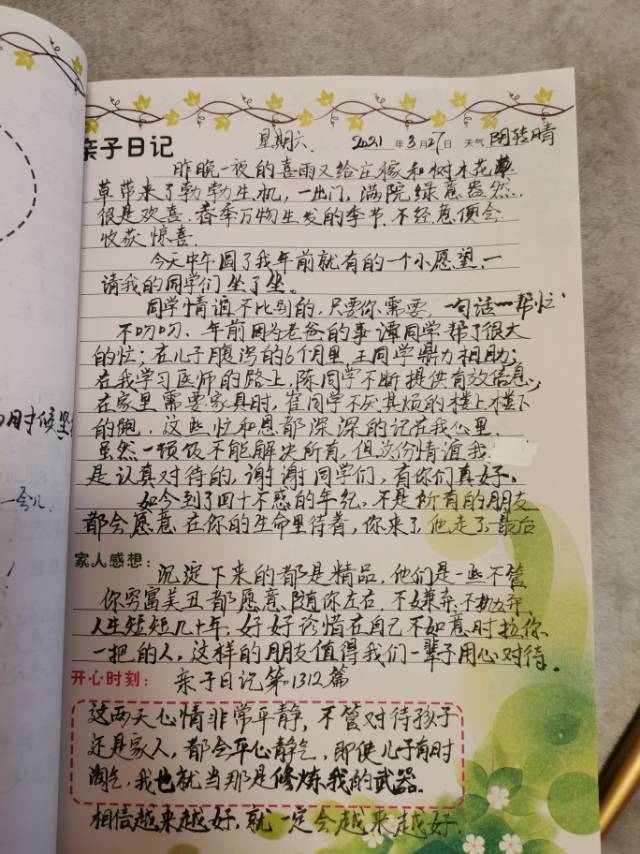 亲子日记 星期六. 2021年3月27日 天气 阴转晴
昨晚一夜的喜雨又给庄稼和树木花
草带来了勃勃生机,一出门,满院绿意盎然,
很是欢喜.春季万物生发的季节.不经意便会
收获惊喜.
今天中午圆了我年前就有的一个小愿望,一
请我的同学们坐了坐。
同学情谊不比别的,只要你需要,一句话一帮忙
不叨叨、年前因为老爸的事谭同学帮了很大
的忙;在儿子腹泻的6个月里,王同学鼎力相助;
在我学习医师的路上,陈同学不断提供有效信息;
在家里需要家具时,崔同学不厌其烦的楼上楼下
的跑,这些忙和恩都深深的记在我心里.
虽然一顿饭不能解决所有,但这份情谊我
是认真对待的,谢谢同学们,有你们真好。
如今到了四十不惑的年纪。不是所有的朋友
都会愿意在你的生命里待着,你来了,他走了最后
家人感想:沉淀下来的都是精品,他们是一些不管
你穷富美丑都愿意随你左右.不嫌弃.不抛弃,
人生短短几十年.好好珍惜在自己不如意时拉你
一把的人,这样的朋友值得我们一辈子用心对待.
开心时刻:亲子日记第1312篇
这两天心情非常平静,不管对待孩子
还是家人,都会平心静气,即使儿子有时
淘气,我也就当那是修炼我的武器.
相信越来越好,就一定会越来越好.
的时候坐
一会儿.